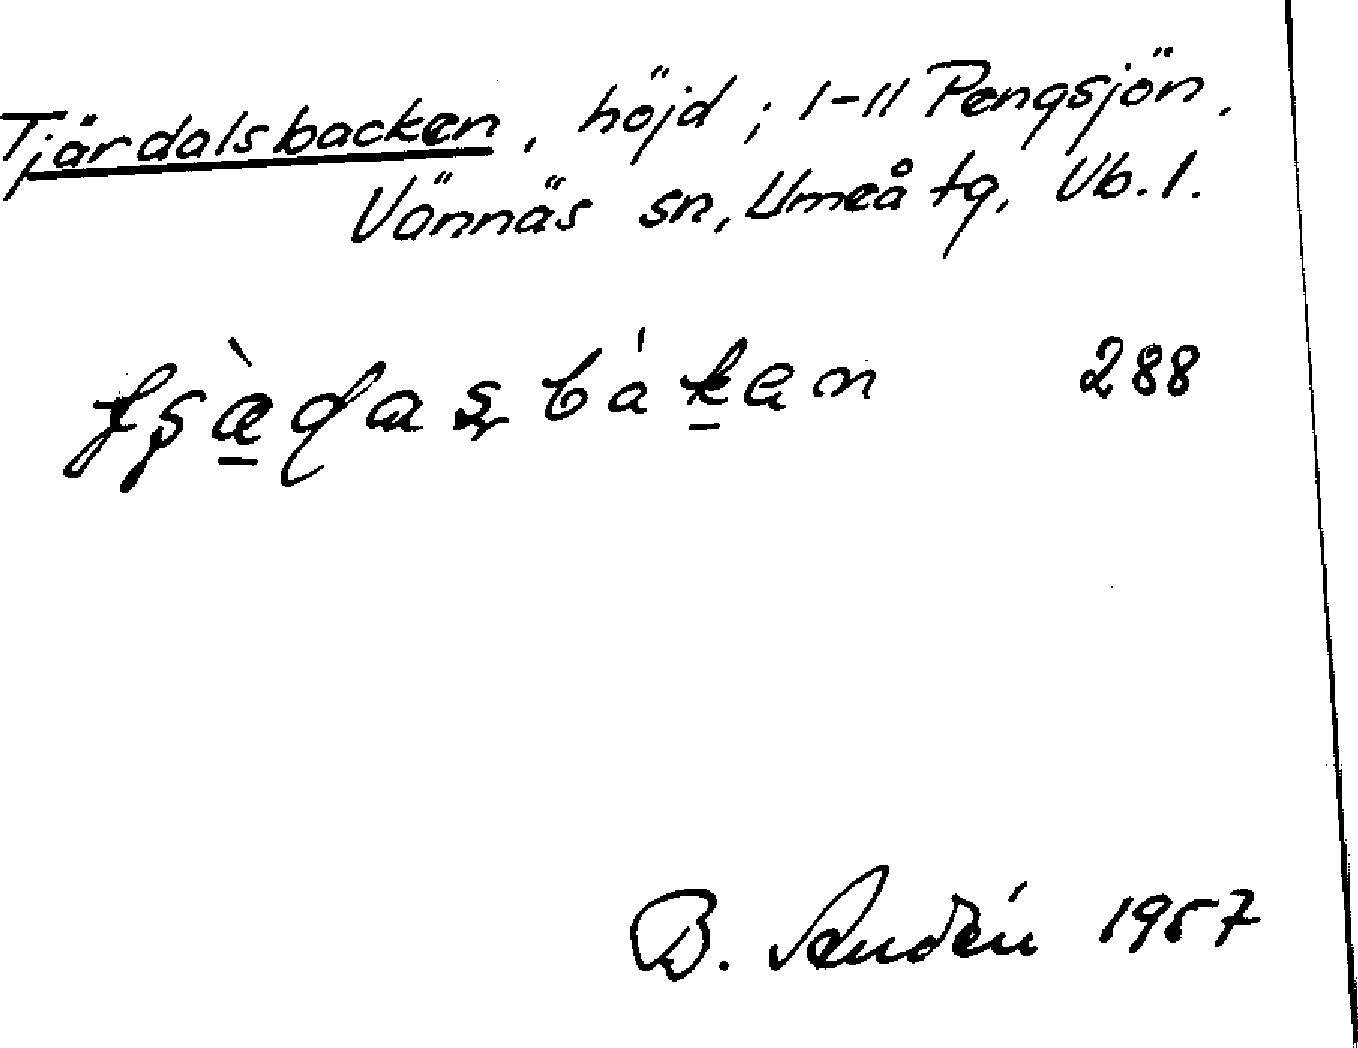 Tjärdalsbacken, höjd; 1-11 Pengsjön.
Vännäs sn, Umeå tg, Vb. l.
288
B. Andén 1967